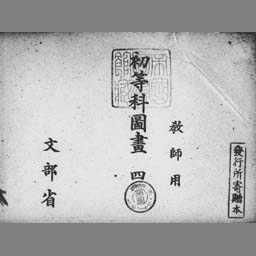 發行所寄贈本
教師用
初等科圖畫 四
文部省